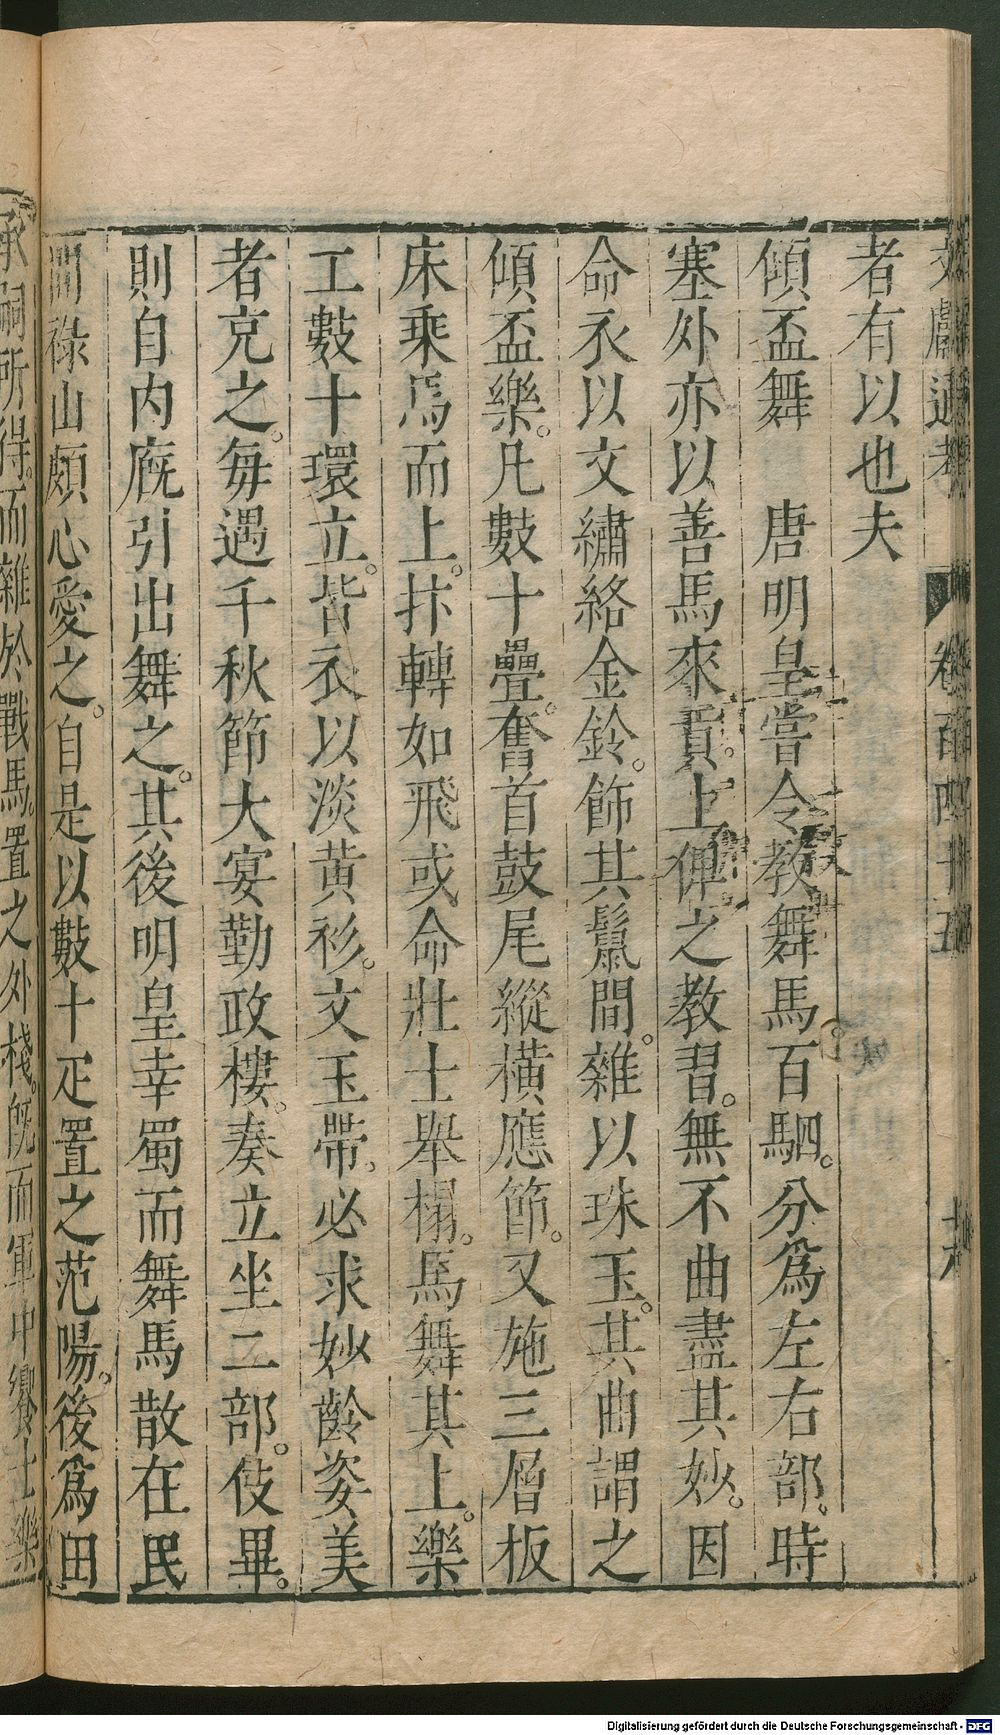 文獻通考 卷百四十五 十六
者有以也夫
傾盃舞 唐明皇嘗令教舞馬百駟。分爲左右部。時
塞外亦以善馬來貢。上俾之教習。無不曲盡其妙。因
命衣以文繡絡金鈴。飾其鬃間。雜以珠玉。其曲謂之
傾盃樂。凡數十疊。奮首鼓尾縱橫應節。又施三層板
床乗馬而上。抃轉如飛或命壯士舉榻。馬舞其上。樂
工數十環立。皆衣以淡黄衫。文玉帶。必求妙齡姿美
者充之。每遇千秋節大宴勤政樓。奏立坐二部。伎畢。
則自内廐引出舞之。其後明皇幸蜀而舞馬散在民
間祿山頗心愛之。自是以數十疋置之范陽。後爲田
承嗣所得。而雜於戰馬。置之外棧。旣而軍中饗士樂
Digitalisierung gefördert durch die Deutsche Forschungsgemeinschaft - DFG